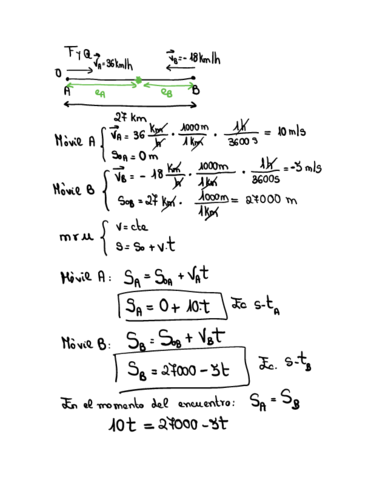 F y Q
v⃗A = 36 km/h v⃗B = -18 km/h
O
A eA eB B
27 km
Móvil A { v⃗A = 36 km/h · 1000m/1km · 1h/3600s = 10 m/s
S0A = 0 m
Móvil B { v⃗B = -18 km/h · 1000m/1km · 1h/3600s = -5 m/s
S0B = 27 km · 1000m/1km = 27000 m
mru { v = cte
s = s0 + v·t
Móvil A: SA = S0A + vAt
SA = 0 + 10·t Ec s-tA
Móvil B: SB = S0B + vBt
SB = 27000 - 5t Ec. s-tB
En el momento del encuentro: SA = SB
10t = 27000 - 5t